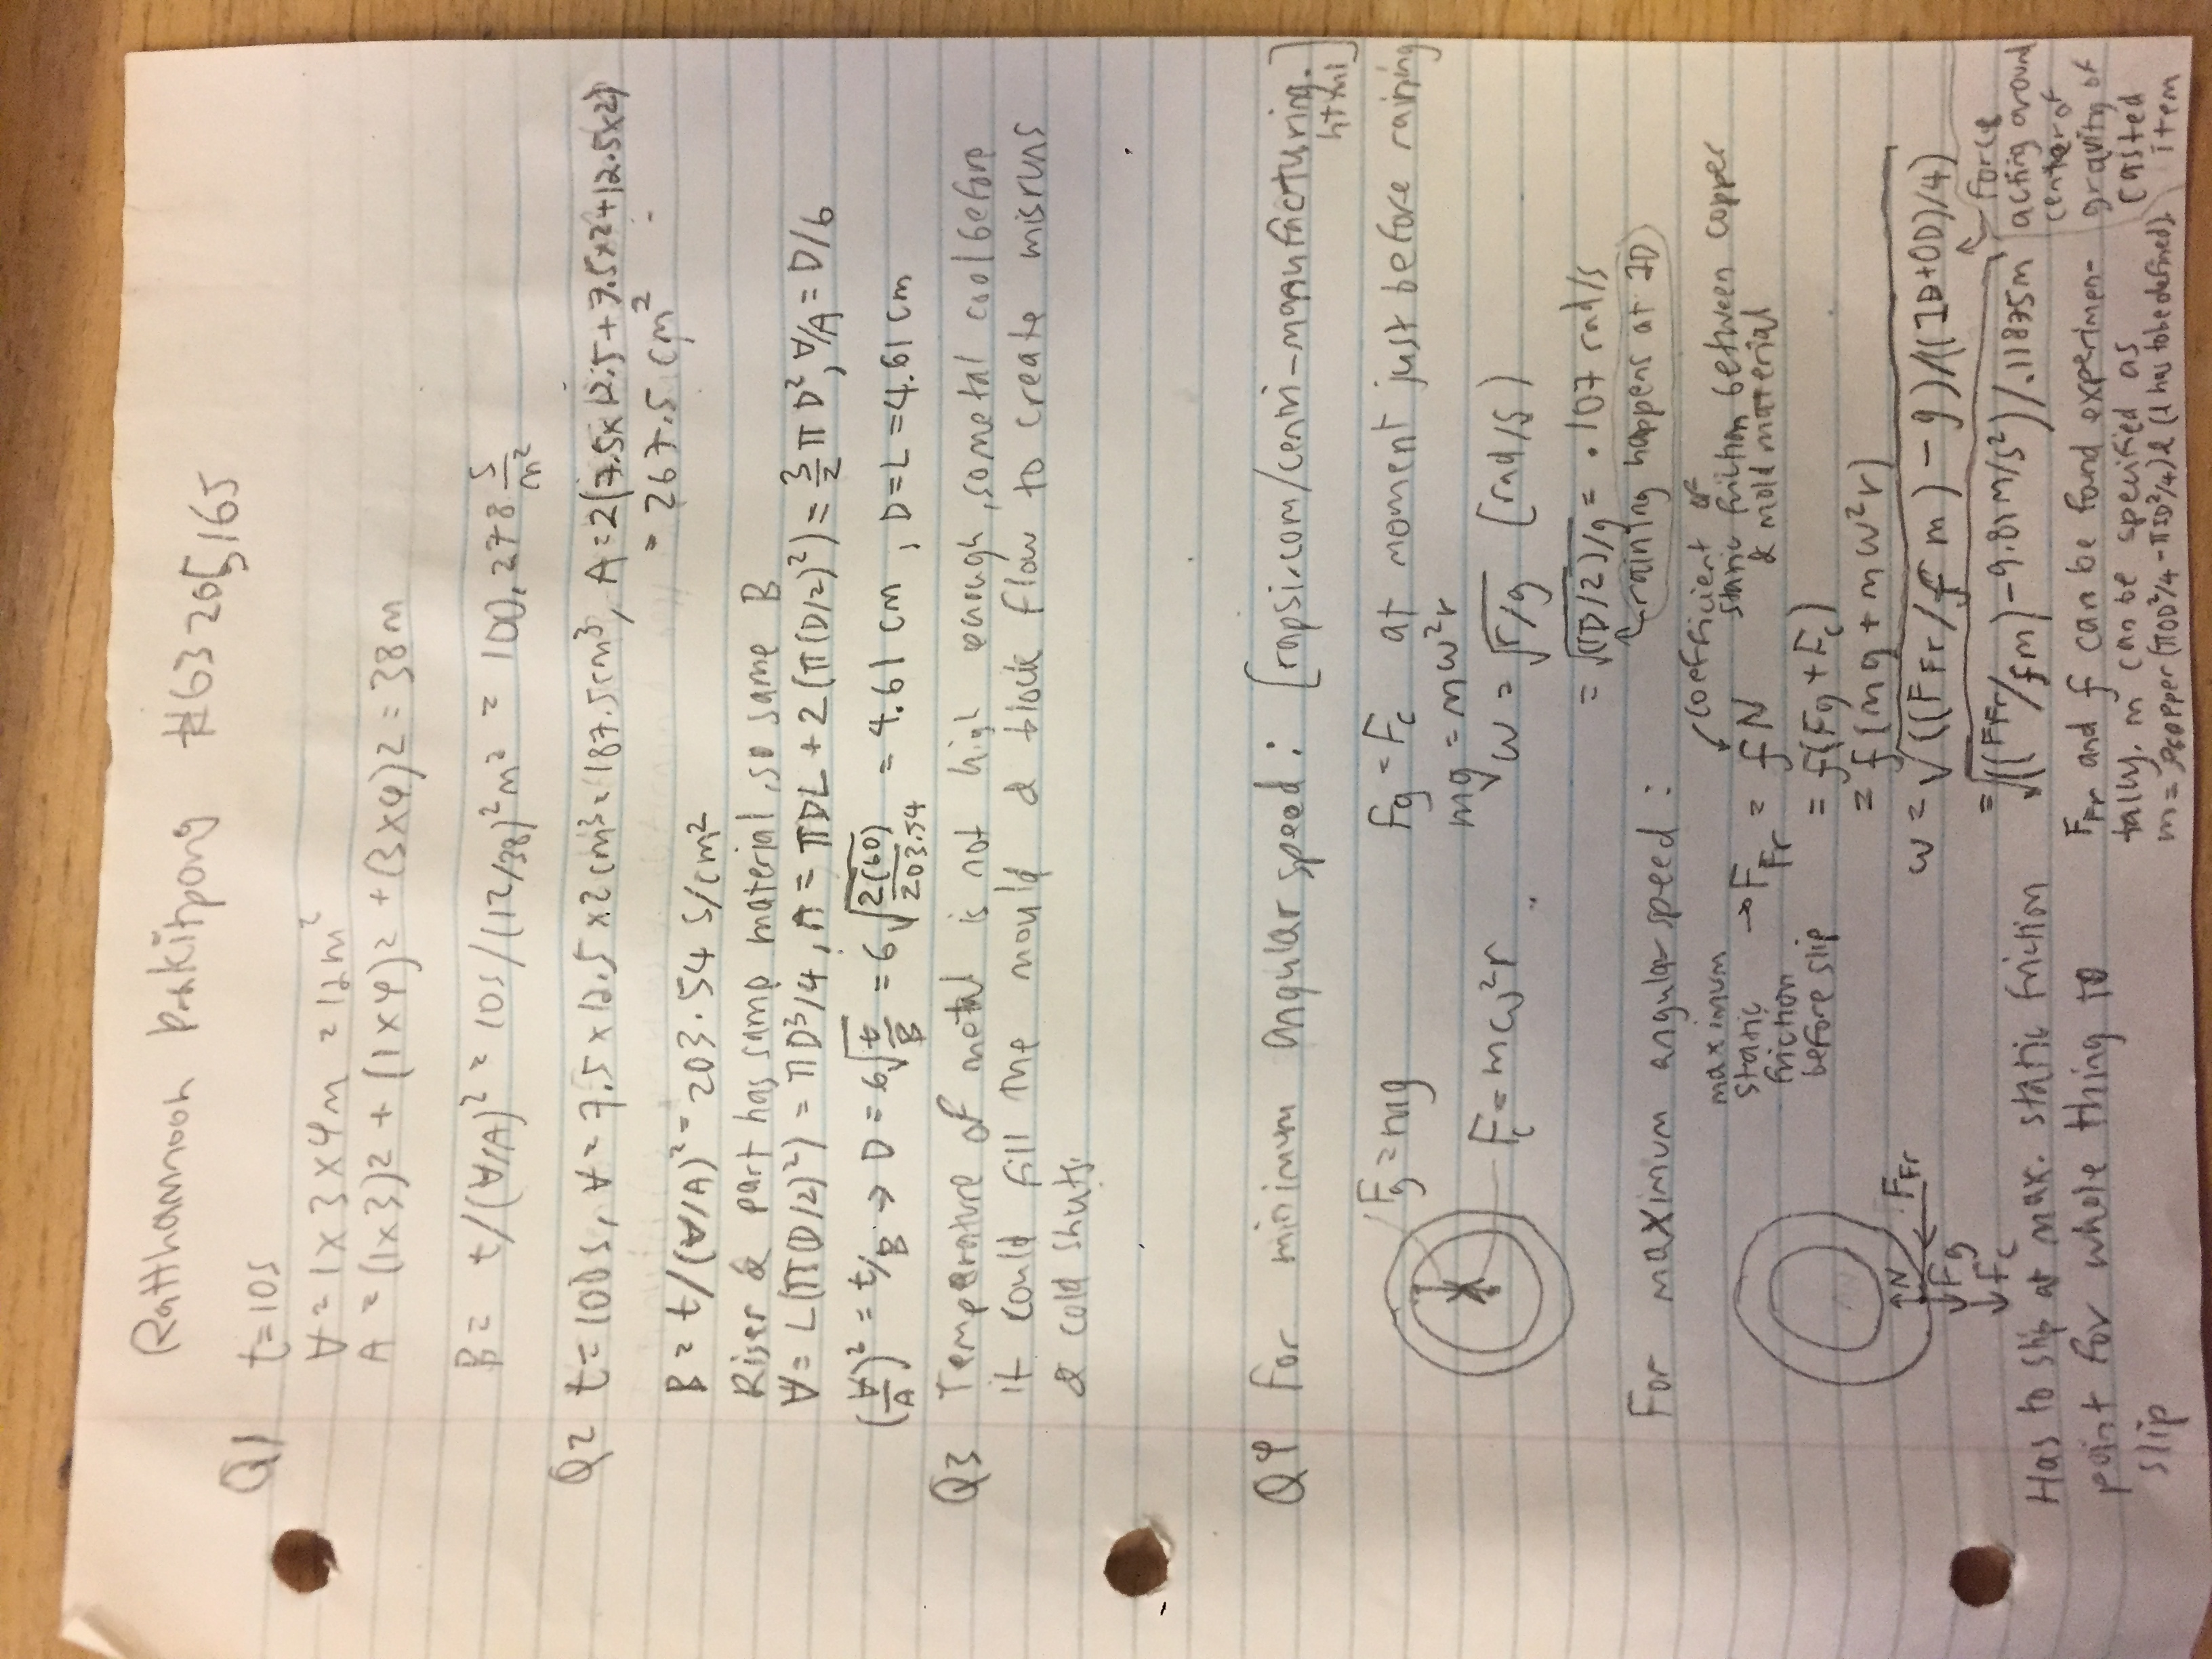 Ratthamnoon Prakitpong #63205165
Q1 t=10s
V = 1 x 3 x 4m = 12m²
A = (1x3)2 + (1x4)2 + (3x4)2 = 38m
B = t/(V/A)² = 10s/(12/38)²m² = 100.278 s/m²
Q2 t=100s, V = 7.5 x 12.5 x 2 cm³ = 187.5cm³, A = 2(7.5x12.5+7.5x2+12.5x2)
= 267.5 cm²
B = t/(V/A)² = 203.54 s/cm²
Riser & part has same material, so same B
V = L(π(D/2)²) = πD³/4, A = πDL + 2(π(D/2)²) = 3/2 πD², V/A = D/6
(V/A)² = t/B → D = 6√(t/B) = 6√(2(60)/203.54) = 4.61 cm, D=L=4.61 cm
Q3 Temperature of metal is not high enough, so metal cool before
it could fill the mould & block flow to create misruns
& cold shuts.
Q4 For minimum angular speed: [rapsi.com/centri-manufacturing.
html]
Fg = mg
Fg = Fc at moment just before raining
mg = mω²r
Fc = mω²r
ω = √r/g [rad/s]
= √((D/2)/g = .107 rad/s
raining happens at ID
For maximum angular speed:
maximum static friction before slip → F_Fr = fN
coefficient of static friction between copper & mold material
= f(Fg + Fc)
= f(mg + mω²r)
N
F_Fr
Fg
Fc
ω = √((F_Fr/f m) - g)/((ID+OD)/4)
= √((F_Fr/fm) - 9.81m/s²)/.11875m
force acting around center of gravity of casted item
Has to slip at max. static friction
point for whole thing to
slip
F_Fr and f can be found experimen-
tally. m can be specified as
m = ρcopper(πOD²/4 - πID²/4)l (l has to be defined).